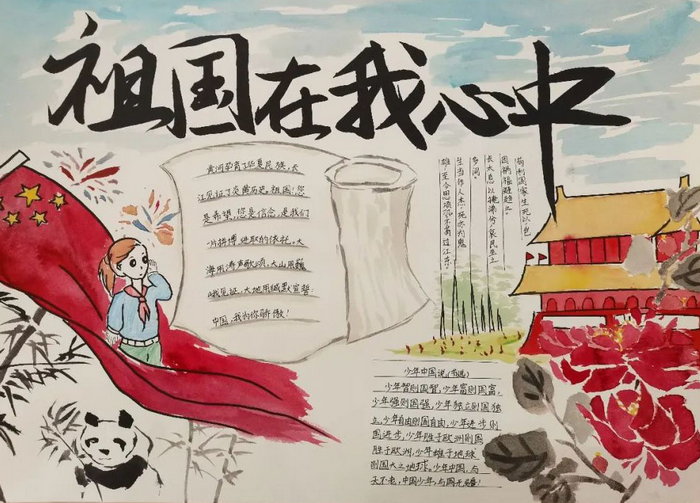 祖国在我心中
黄河孕育了华夏民族,大
江见证了炎黄历史。祖国,您
是希望,您是信念,是我们
一片拼搏进取的依托,大
海用涛声歌颂,大山用巍
峨见证,大地用缄默宣誓:
中国,我为你骄傲!
苟利国家生死以岂
因祸福避趋之
长太息以掩涕兮哀民生之
多
生当作人杰死亦为鬼
雄至今思项羽不肯过江东
少年中国说(节选)
少年智则国智,少年富则国富,
少年强则国强,少年独立则国独
立,少年自由则国自由,少年进步则
国进步,少年胜于欧洲则国
胜于欧洲,少年雄于地球
则国 地球。少年中国,与
天不老,中国少年,与国无疆!